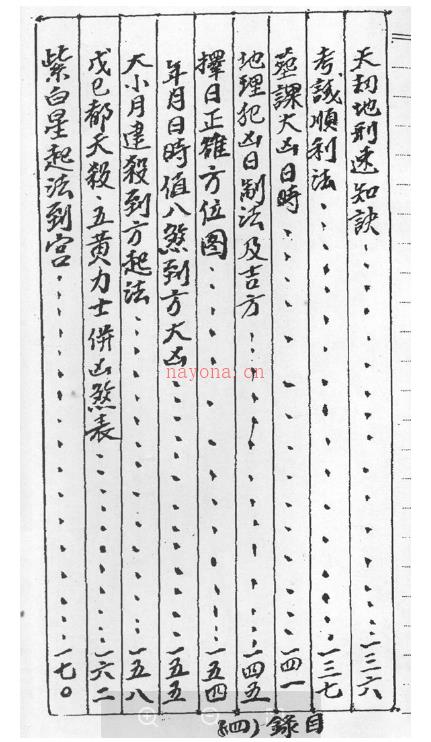 天劫地刑速知訣 一三六
考試順利法 一三七
葬課大凶日時 一四一
地理犯凶日制法及吉方 一四五
擇日正錐方位图 一五四
年月日時值八煞到方大凶 一五五
大小月建殺到方起法 一五八
戊己都天殺、五黃力士併凶煞表 一六二
紫白星起法到宮 一七〇
目錄(四)
nayona.cn